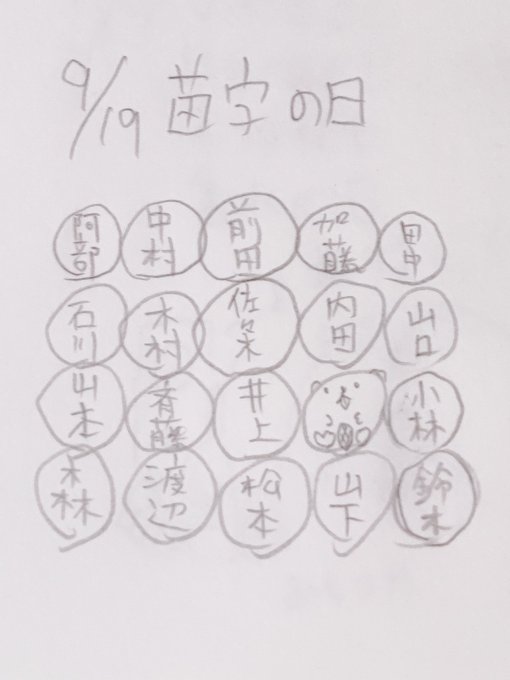 9/19 苗字の日
阿部 中村 前田 加藤 田中
石川 木村 佐々木 内田 山口
山本 斉藤 井上 小林
森 渡辺 松本 山下 鈴木